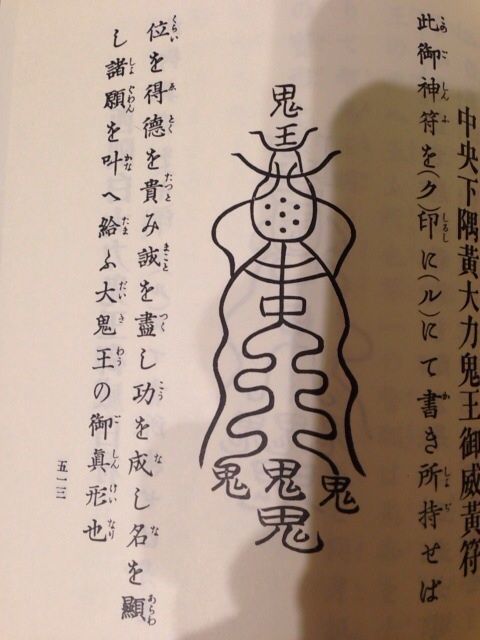 中央下隅黃大力鬼王御威黃符
此御神符を(ク)印に(ル)にて書き所持せば
鬼
王
中
鬼鬼鬼
鬼
位を得德を貴み誠を盡し功を成し名を顯
し諸願を叶へ給ふ大鬼王の御眞形也
五一三